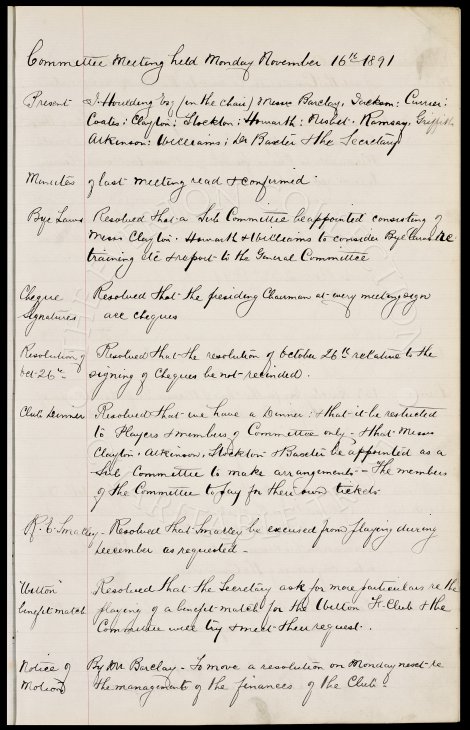 Committee Meeting held Monday November 16th 1891
Present J. Houlding Esq (in the Chair) Messrs Barclay, Jackson: Currier:
Coates: Clayton: Stockton: Howarth: Nisbet. Ramsay, Griffith
Atkinson: Williams: Dr Baxter & the Secretary
Minutes of last meeting read & confirmed
Bye Laws Resolved that a Sub Committee be appointed consisting of
Messrs Clayton. Howarth & Williams to consider Bye Laws re
training etc & report to the General Committee
Cheque Resolved that the presiding Chairman at every meeting sign
Signatures all cheques
Resolution of Resolved that the resolution of October 26th relative to the
Oct 26th - signing of Cheques be not rescinded.
Club Dinner Resolved that we have a Dinner: & that it be restricted
to Players & members of Committee only - & that Messrs
Clayton. Atkinson, Stockton & Baxter be appointed as a
Sub Committee to make arrangements - The members
of the Committee to pay for their own tickets
R. C Smalley - Resolved that Smalley be excused from playing during
December as requested -
"Witton" Resolved that the Secretary ask for more particulars re the
benefit match playing of a benefit match for the Witton F. Club & the
Committee will try & meet their request.
Notice of By Mr Barclay - To move a resolution on Monday next re
Motion the management of the finances of the Club -